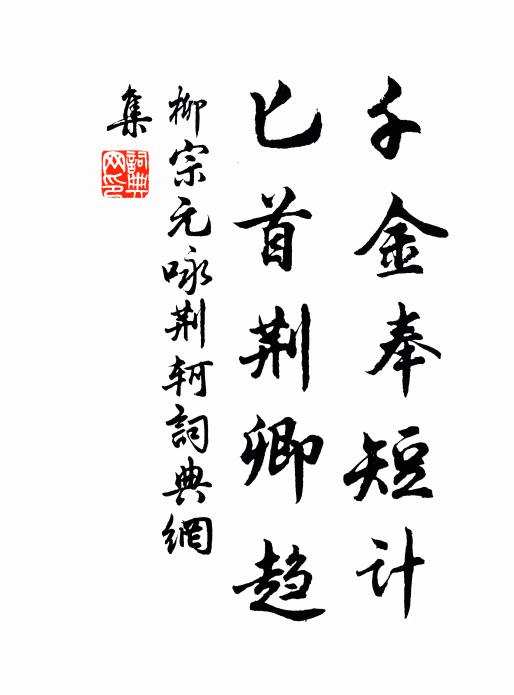 千金奉短计
匕首荆卿趋
柳宗元咏荆轲詞典網
集
詞典
网印